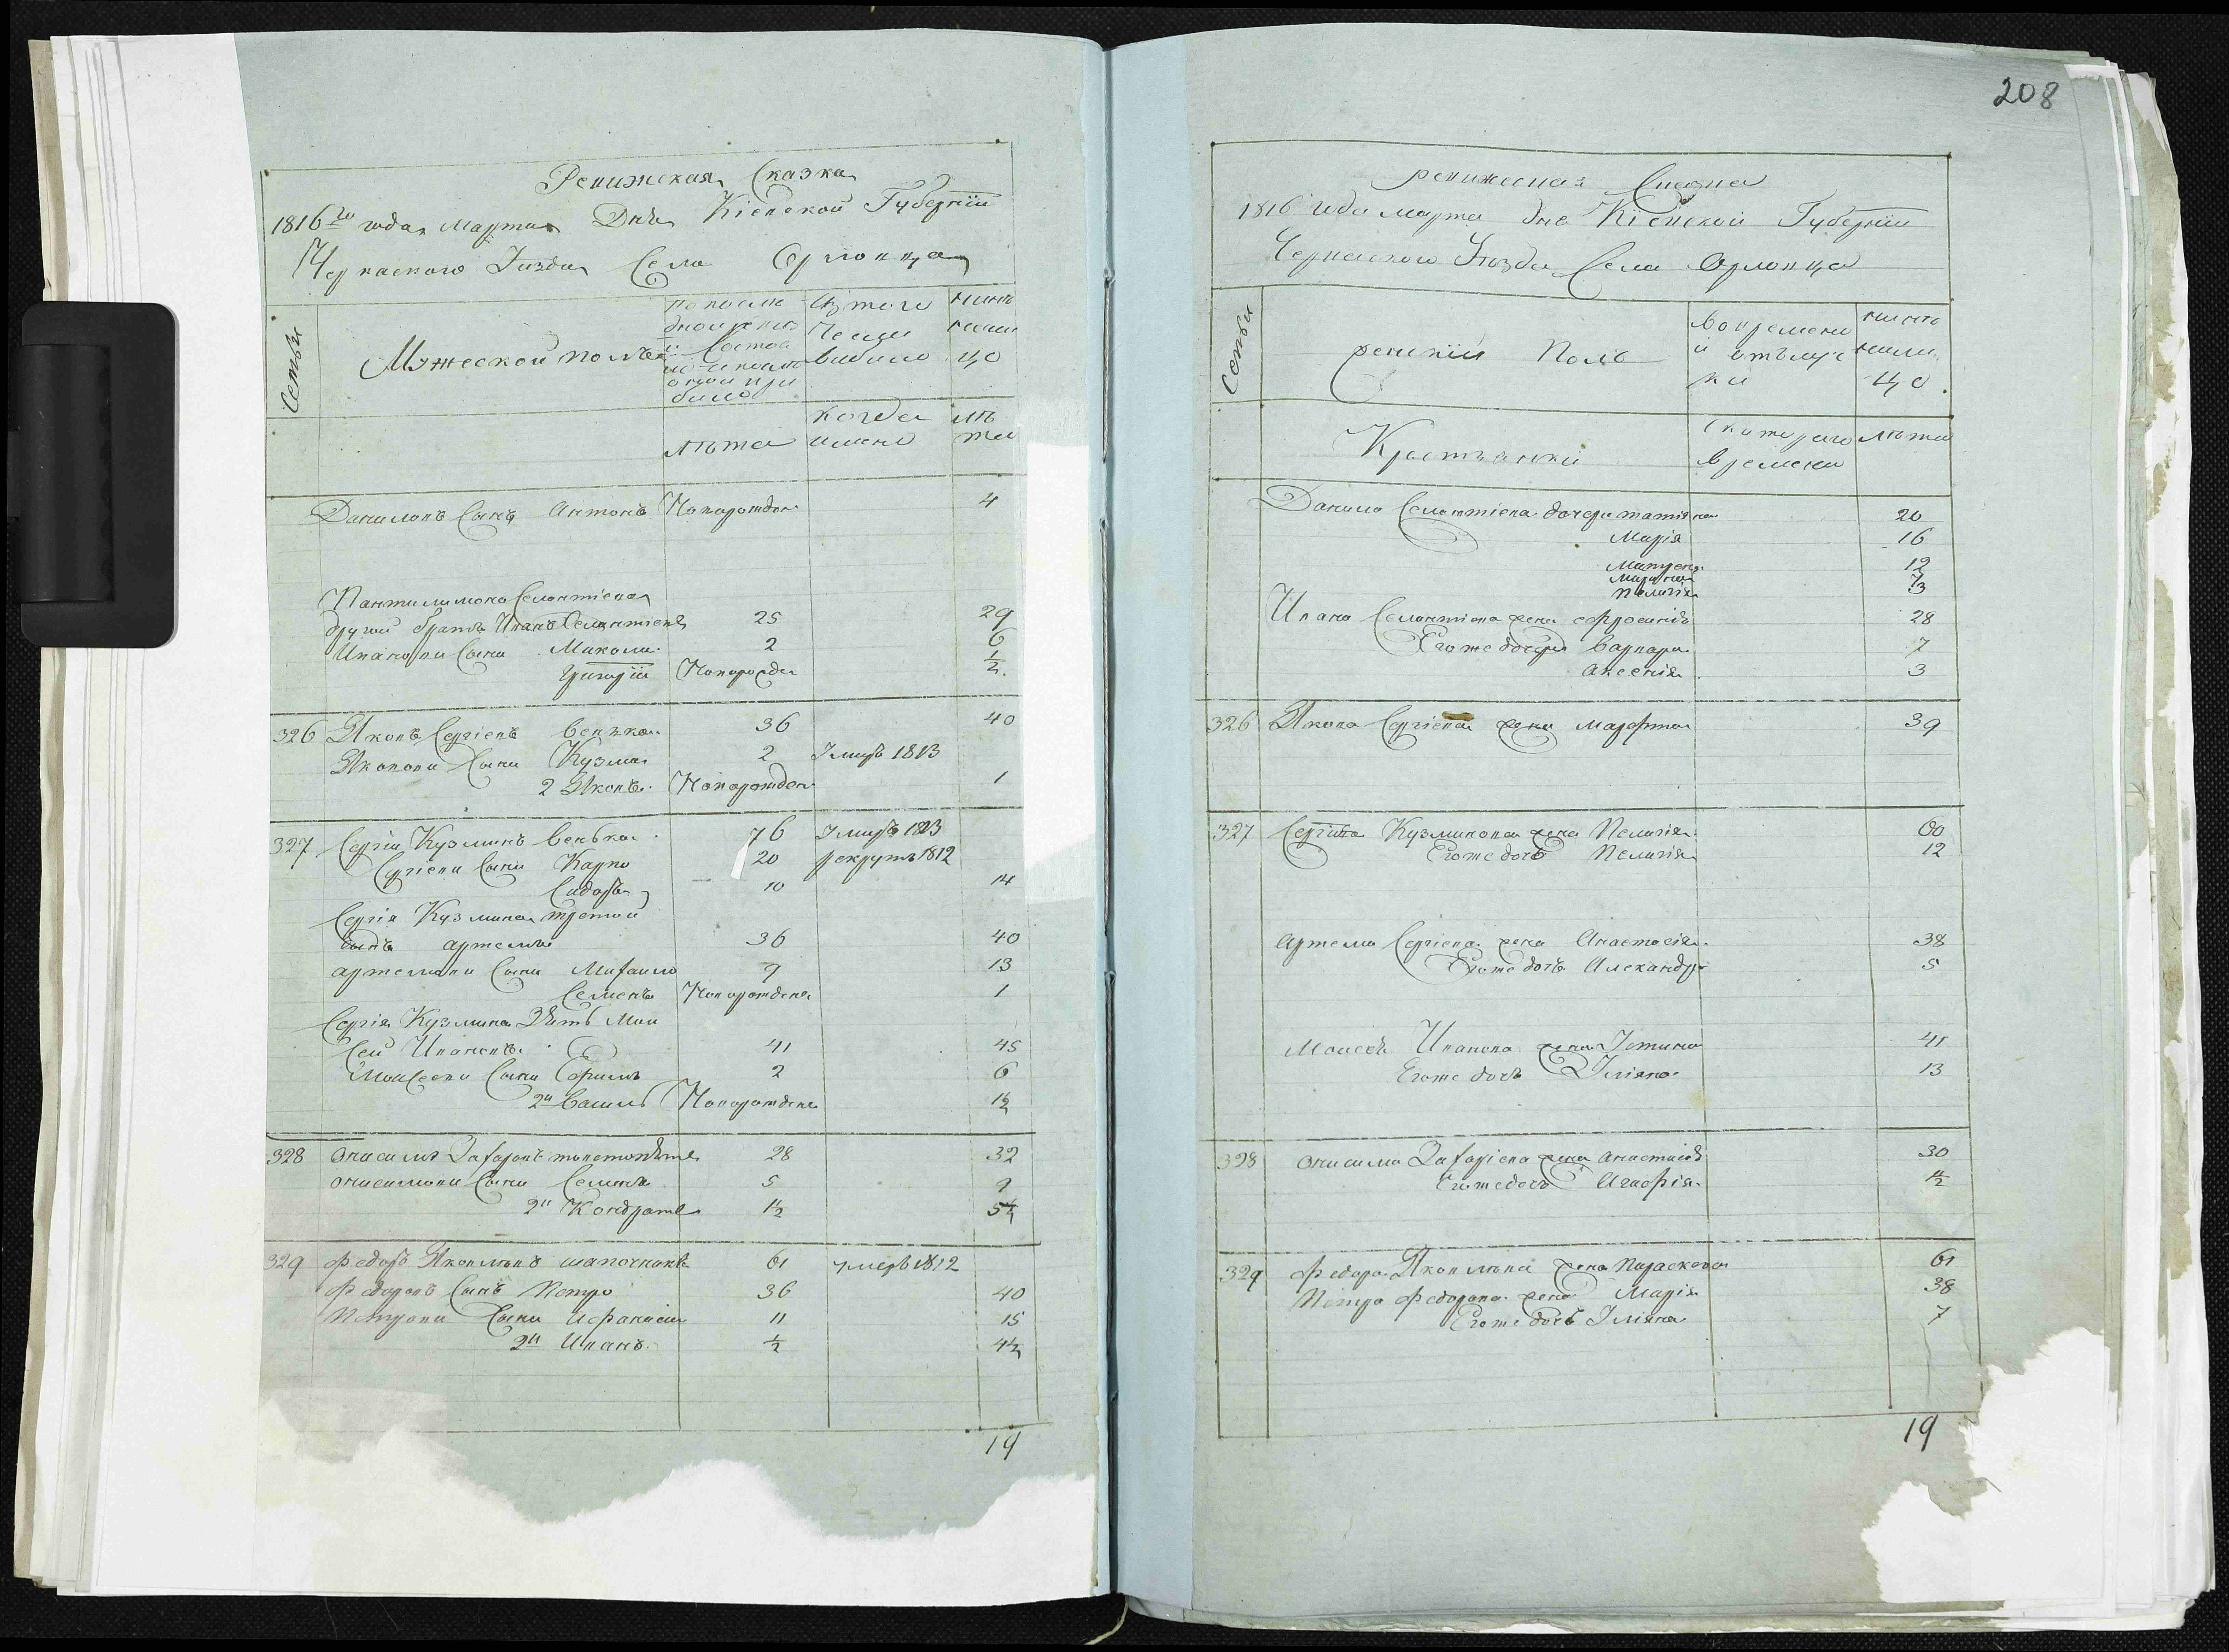 Ревижская Сказка
1816го года Марта Дня Кіевской Губерніи
Черкаского Уезда Села Орловца
Семьи
Мужеской полъ
по послѣ
дной реви
зіи состоя
ло и послѣ
оной при
было
Изъ того
числа
выбыло
нынѣ
нали
цо
лѣта
когда
имено
лѣ
та
Даниловъ Сынъ Антонъ Новорожден 4
Пантилимона Селантіева
другий братъ Иванъ Селантіевъ 25 29
Ивановы Сыны Микола 2 6
Григорій Новорожден 1/2
326 Яковъ Сергіевъ Венъка 36 40
Яковови Сыны Кузма 2 Умиръ 1813
2 Яковъ Новорожден 1
327 Сергій Кузминъ Венька 76 Умиръ 1813
Сергіеви Сыны Карпо 20 рекрутъ 1812
Сидоръ 10 14
Сергія Кузмина третий
сынъ артемъ 36 40
артемови Сыны Михаило 9 13
Семенъ Новорожденъ 1
Сергія Кузмина Зять Мои
Сей Ивановъ 41 45
Моисееви Сыны Ефимъ 2 6
2й Василь Новорожденъ 1½
328 Онисимъ Захаровъ 28 32
онисимови Сыны Семенъ 5 9
2й Кондратъ 1½ 5½
329 Федоръ Яковлѣвъ шапочникъ 61 умеръ 1812
Федоровъ Сынъ Петро 36 40
Петрови Сыны Афанасій 11 15
2й Иванъ ½ 4½
19
208
ревижская Сказка
1816 года марта дня Кіевской Губерніи
Черкаского Уезда Села Орловца
Семьи
женскій Полъ
Во времени
й отълуч
ки
нынѣ
нали
цо
Крестьянки
Скоторого
времени
лѣта
Данила Селантіева дочери татіяна 20
Марія 16
Матрона 12
Марина 7
Пелагія 3
Ивана Селантіева жена ефросинія 28
Егоже дочери Варвара 7
аксенія 3
326 Якова Сергіева жена марфта 39
327 Сергіява Кузминова жена Пелагія 60
Егоже дочь Пелагія 12
Артема Сергіева жена Анастасія 38
Егоже дочь Александра 5
Моисея Иванова жена Устина 41
Егоже дочь Уліяна 13
328 Онисима Захаріева жена анастасія 30
Егоже дочь Агафія ½
329 Федора Яковлѣва жена Параскева 61
Петра федорова жена Марія 38
Егоже дочь Уліяна 7
19